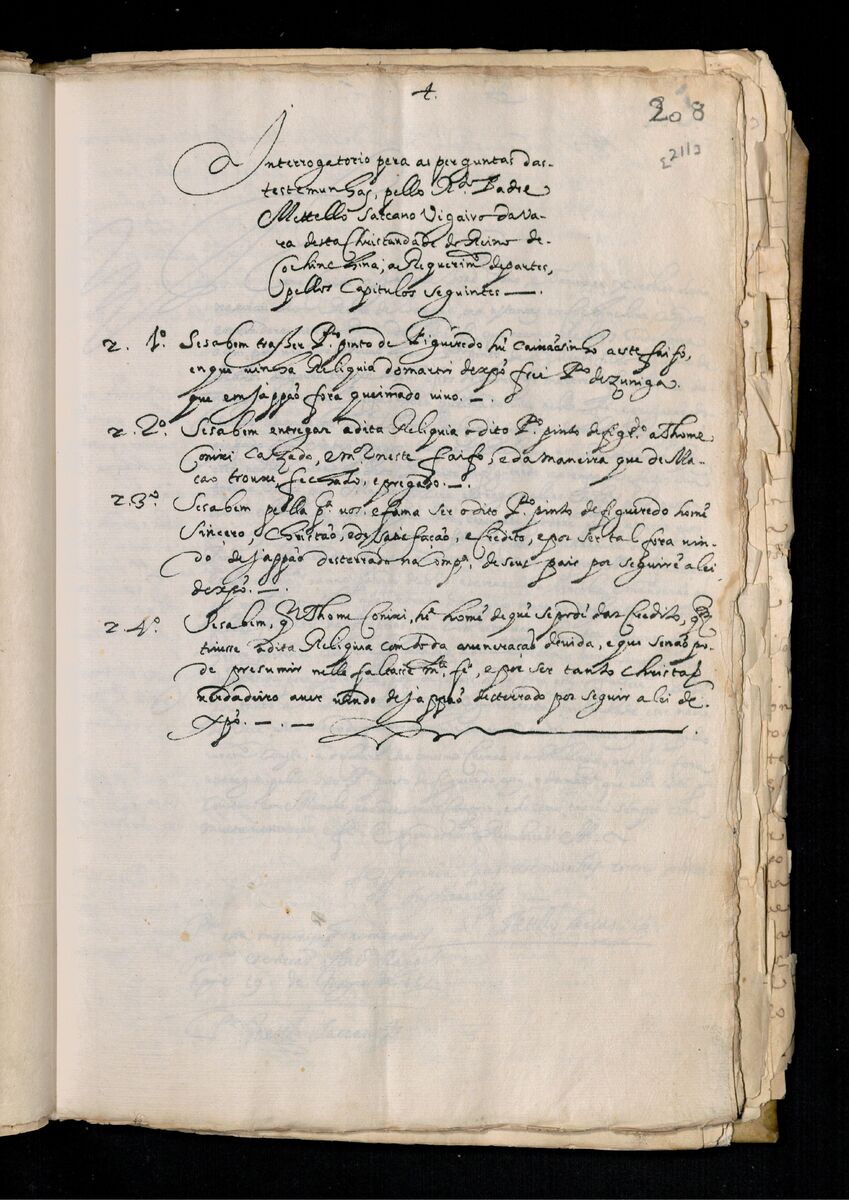 4.
208
Interrogatorio pera as perguntas das
testemunhas, pello R.do Padre
Mettello Saccano Vigairo da Va-
ra desta Christandade do Reino de
Cochinchina; a Requerim.to de partes,
pellos Capitulos seguintes —.
2. 1.º Se sabem trasser P.º pinto de Figueiredo hũ caixaõsinho a este faifo,
en que vinha Reliquia do martir de xpõ frei P.º de zuniga.
que em Jappaõ fora queimado vivo. —.
2. 2.º Se sabem entregar a dita Reliquia o dito P.º pinto de fig.do a Thome
Conixi Cazado, e m.or neste faifo, e da maneira que de Ma-
cao trouxe, fechado, e pregado. —.
2. 3.º Se sabem pella p.ca vos, e fama ser o dito P.º pinto de figueiredo homẽ
sincero, Christaõ, e de satisfaçaõ, e Credito, e por ser tal fora vin-
do de Jappaõ desterrado na Comp.a de seus pais por seguirẽ a lei
de xpõ. —.
2. 4.º Se sabem, q̃ Thome Conixi, hé homẽ de quẽ se pode dar Credito, q̃
tivesse a dita Reliquia com toda a veneraçaõ devida, e que se naõ po-
de presumir nelle faltasse m.ta fé, e por ser tanto christaõ
verdadeiro aver vindo de Jappaõ desterrado por seguir a lei de
xpõ. —. —